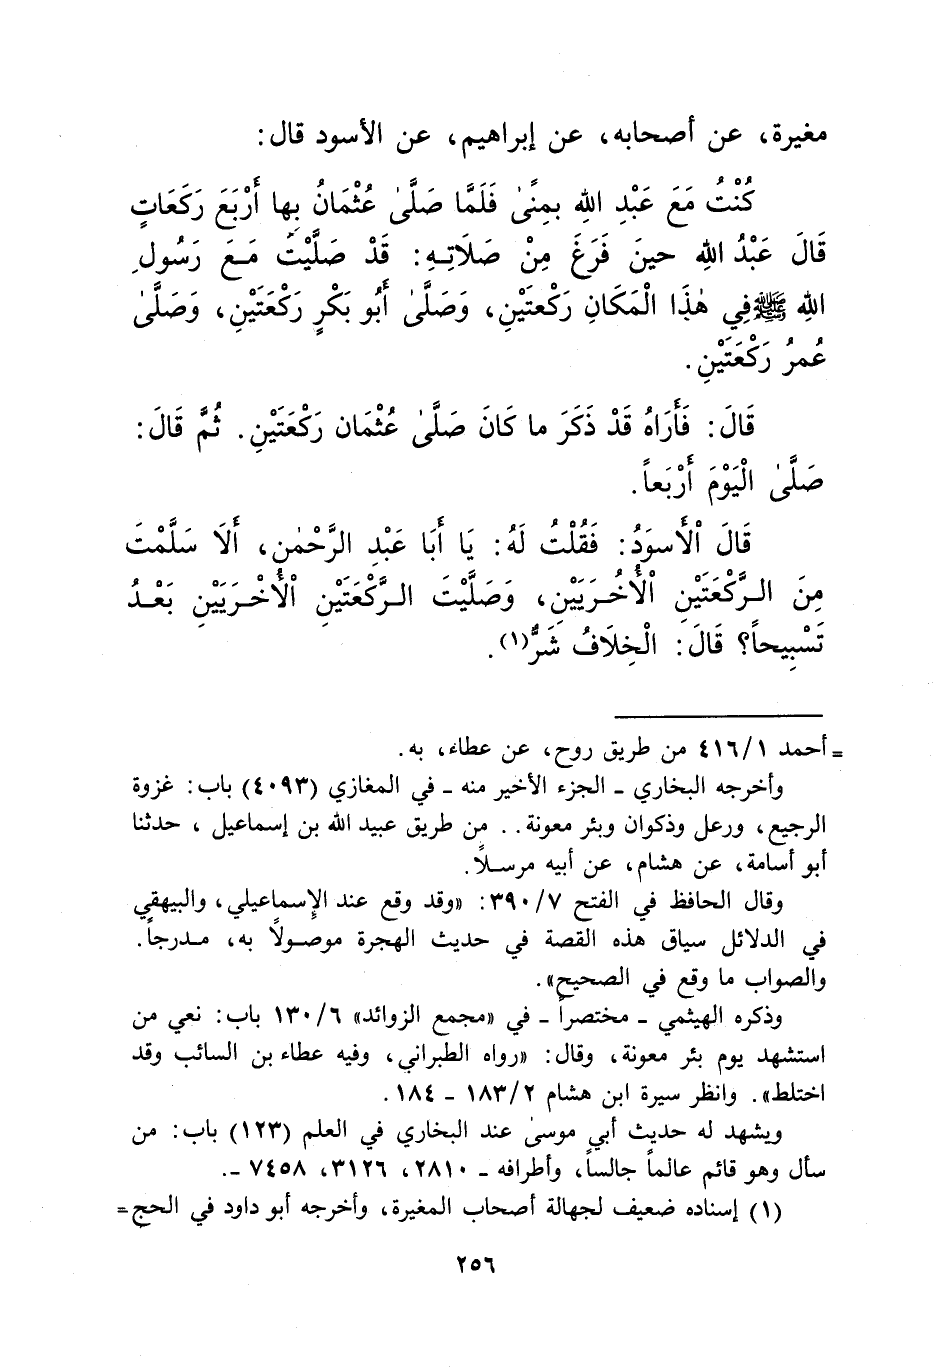 مغيرة، عن أصحابه، عن إبراهيم، عن الأسود قال:
كُنْتُ مَعَ عَبْدِ اللهِ بمِنًى فَلَمَّا صَلَّىٰ عُثْمَانُ بِها أَرْبَعَ رَكَعَاتٍ
قَالَ عَبْدُ اللهِ حينَ فَرَغَ مِنْ صَلَاتِهِ: قَدْ صَلَّيْتُ مَعَ رَسُولِ
اللهِ ﷺ فِي هٰذَا الْمَكَانِ رَكْعتَيْنِ، وَصَلَّىٰ أَبُو بَكْرٍ رَكْعَتَيْنِ، وَصَلَّىٰ
عُمرُ رَكْعَتَيْنِ.
قَالَ: فَأَرَاهُ قَدْ ذَكَرَ ما كَانَ صَلَّىٰ عُثْمَان رَكْعَتَيْنِ. ثُمَّ قَالَ:
صَلَّىٰ الْيَوْمَ أَرْبَعاً.
قَالَ الْأَسوَدُ: فَقُلْتُ لَهُ: يَا أَبَا عَبْدِ الرَّحْمٰنِ، أَلَا سَلَّمْتَ
مِنَ الرَّكْعَتَيْنِ الْأُخْرَيَيْنِ، وَصَلَّيْتَ الرَّكْعَتَيْنِ الْأُخْرَيَيْنِ بَعْدُ
تَسْبِيحاً؟ قَالَ: الْخِلَافُ شَرٌّ(١).
= أحمد ٤١٦/١ من طريق روح، عن عطاء، به.
وأخرجه البخاري - الجزء الأخير منه - في المغازي (٤٠٩٣) باب: غزوة
الرجيع، ورعل وذكوان وبئر معونة.. من طريق عبيد الله بن إسماعيل، حدثنا
أبو أسامة، عن هشام، عن أبيه مرسلاً.
وقال الحافظ في الفتح ٣٩٠/٧: «وقد وقع عند الإسماعيلي، والبيهقي
في الدلائل سياق هذه القصة في حديث الهجرة موصولاً به، مدرجاً.
والصواب ما وقع في الصحيح».
وذكره الهيثمي - مختصراً - في «مجمع الزوائد» ١٣٠/٦ باب: نعي من
استشهد يوم بئر معونة، وقال: «رواه الطبراني، وفيه عطاء بن السائب وقد
اختلط». وانظر سيرة ابن هشام ١٨٣/٢ - ١٨٤.
ويشهد له حديث أبي موسىٰ عند البخاري في العلم (١٢٣) باب: من
سأل وهو قائم عالماً جالساً، وأطرافه - ٢٨١٠، ٣١٢٦، ٧٤٥٨ -.
(١) إسناده ضعيف لجهالة أصحاب المغيرة، وأخرجه أبو داود في الحج =
٢٥٦